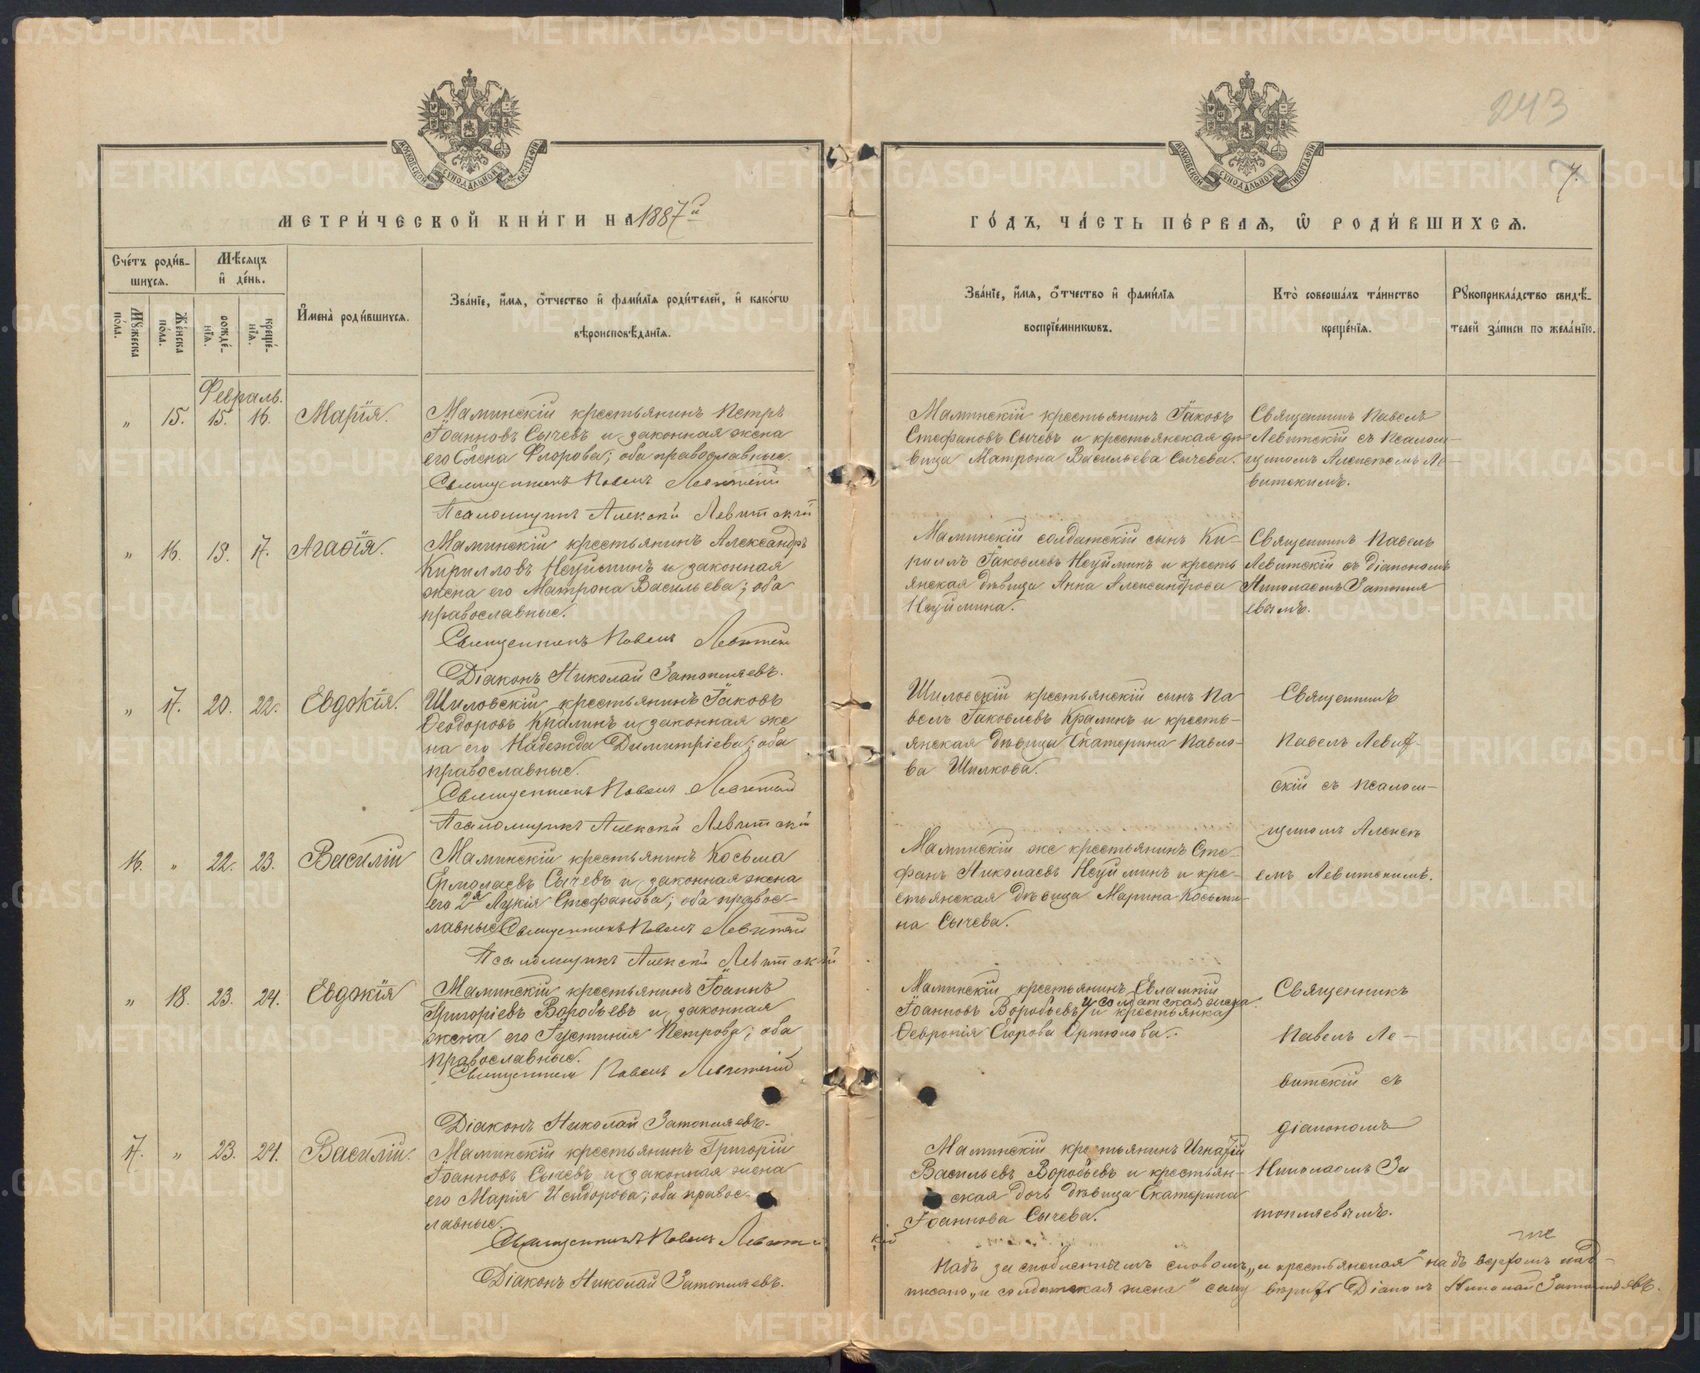 243
7.
МЕТРИ́ЧЕСКОЙ КНИ́ГИ НА 1887й
ГО́ДЪ, ЧА́СТЬ ПЕ́РВАЯ, Ѿ РОДИ́ВШИХСЯ.
Сче́тъ роди́в-
шихся.
Мѣсяцъ
и҆ де́нь.
Му́жеска по́ла.
Же́нска по́ла.
рожде́нїя.
креще́нїя.
И҆мена̀ роди́вшихся.
Зва́нїе, и҆́мя, ѻ҆́тчество и҆ фами́лїя роди́телей, и҆ како́гѡ
вѣроисповѣ́данїя.
Зва́нїе, и҆́мя, ѻ҆́тчество и҆ фами́лїя
воспрїе́мниковъ.
Кто̀ соверша́лъ та́инство
креще́нїя.
Рꙋкоприкла́дство свидѣ́-
телей за́писи по жела́нїю.
Февраль.
„ 15. 15. 16. Марія.
Маминскій крестьянинъ Петръ
Іоанновъ Сычевъ и законная жена
его Елена Флорова; оба православные.
Священникъ Павелъ Левитскій
Псаломщикъ Алексѣй Левитскій
Маминскій крестьянинъ Іаковъ
Стефановъ Сычевъ и крестьянская дѣ-
вица Матрона Васильева Сычева.
Священникъ Павелъ
Левитскій съ псалом-
щикомъ Алексѣемъ Ле-
витскимъ.
„ 16. 15. 17. Агаѳія.
Маминскій крестьянинъ Александръ
Кирилловъ Неуйминъ и законная
жена его Матрона Васильева; оба
православные.
Священникъ Павелъ Левитскій
Діаконъ Николай Затопляевъ.
Маминскій солдатскій сынъ Ки-
риллъ Іаковлевъ Неуйминъ и кресть
янская дѣвица Анна Александрова
Неуймина.
Священникъ Павелъ
Левитскій съ діакономъ
Николаемъ Затопля
евымъ.
„ 17. 20. 22. Евдокія.
Шиловскій крестьянинъ Іаковъ
Ѳеодоровъ Кралинъ и законная же
на его Надежда Димитріева; оба
православные.
Священникъ Павелъ Левитскій
Псаломщикъ Алексѣй Левитскій
Шиловскій крестьянскій сынъ Па
велъ Іаковлевъ Кралинъ и кресть-
янская дѣвица Екатерина Павло-
ва Шилкова.
Священникъ
Павелъ Левит-
скій съ псалом-
щикомъ Алексѣ
емъ Левитскимъ.
16. „ 22. 23. Василій
Маминскій крестьянинъ Косьма
Ермолаевъ Сычевъ и законная жена
его 2я Лукія Стефанова; оба правос-
лавные. Священникъ Павелъ Левитскій
Псаломщикъ Алексѣй Левитскій
Маминскій же крестьянинъ Сте-
фанъ Николаевъ Неуйминъ и кре-
стьянская дѣвица Марина Косьми-
на Сычева.
„ 18. 23. 24. Евдокія
Маминскій крестьянинъ Іоаннъ
Григоріевъ Воробьевъ и законная
жена его Іустинія Петрова; оба
православные.
Священникъ Павелъ Левитскій
Діаконъ Николай Затопляевъ.
Маминскій крестьянинъ Евлампій
Іоанновъ Воробьевъ и солдатская жена
и крестьянка
Ѳевронія Егорова Ортюгова.
Священникъ
Павелъ Ле-
витскій съ
діакономъ
Николаемъ За
топляевымъ.
17. „ 23. 24. Василій.
Маминскій крестьянинъ Григорій
Іоанновъ Сычевъ и законная жена
его Марія Исидорова; оба правос-
лавные.
Священникъ Павелъ Левитскій
Діаконъ Николай Затопляевъ.
Маминскій крестьянинъ Игнатій
Васильевъ Воробьевъ и крестьян-
ская дочь дѣвица Екатерина
Іоаннова Сычева.
Надъ заскобленнымъ словомъ „и крестьянская" надъ верхомъ над-
писано „и солдатская жена" сему вѣрить Діаконъ Николай Затопляевъ.